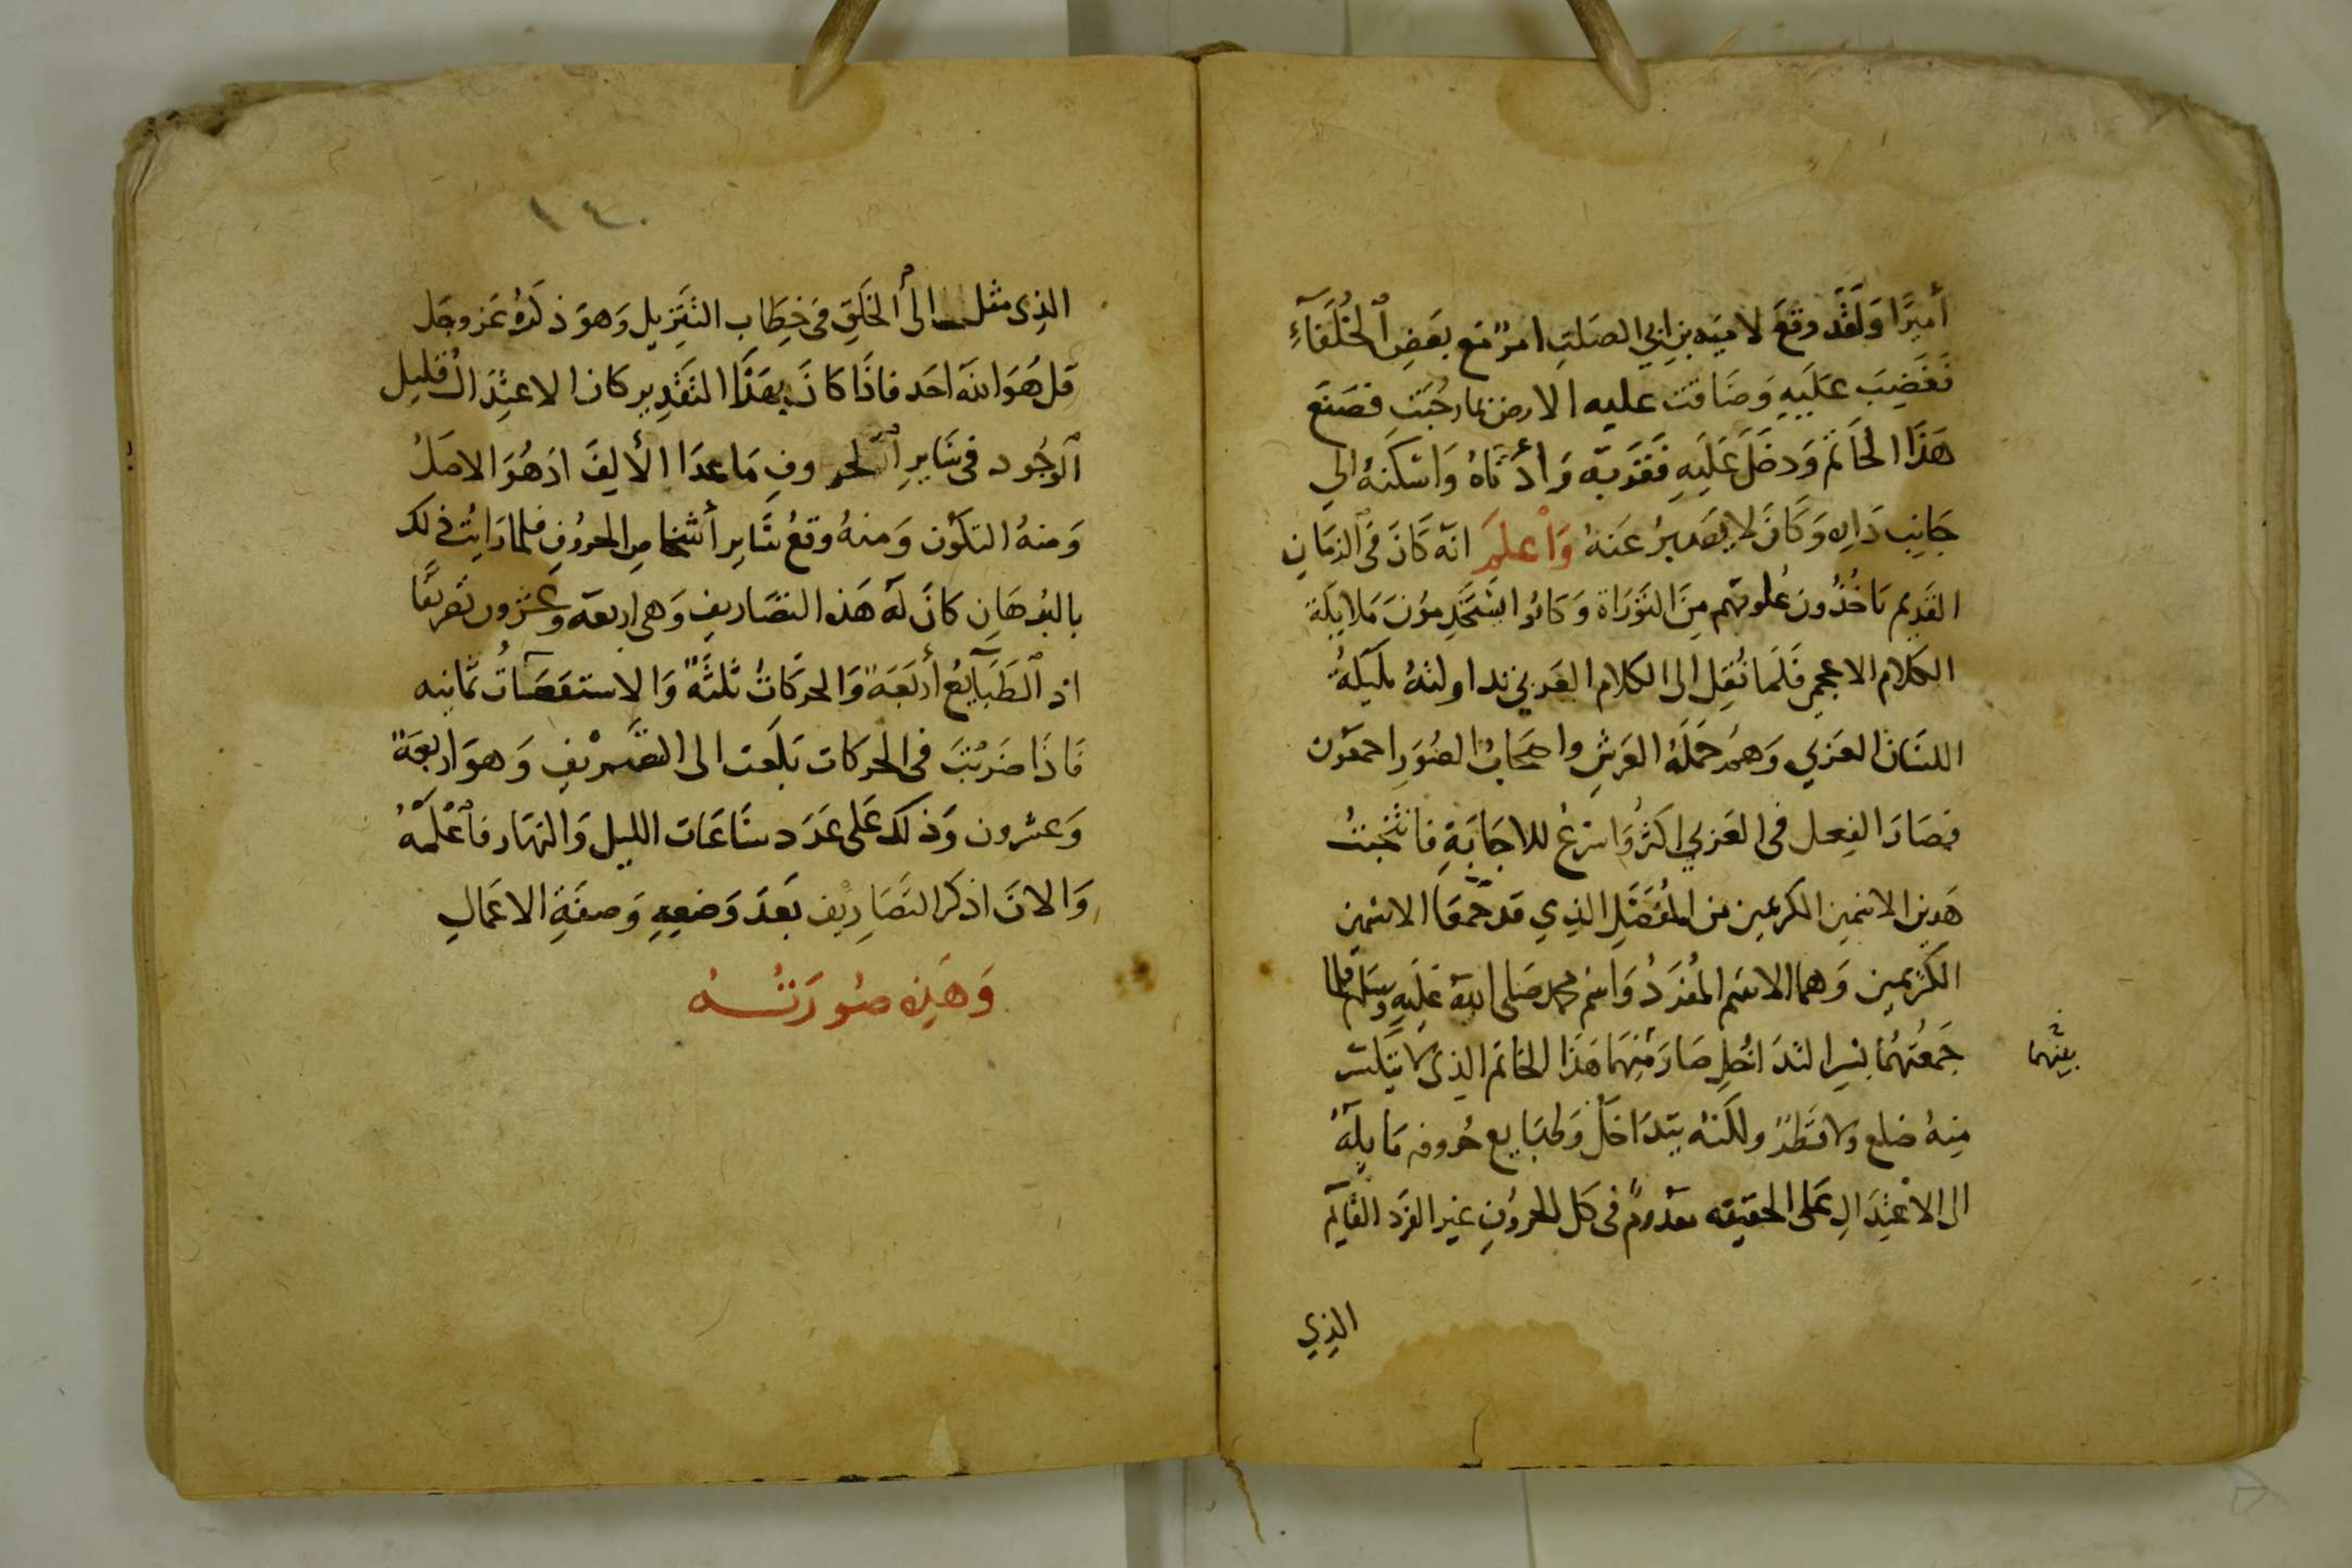 أميرًا وَلَقَد وقعَ لاميه بن ابي الصلتِ امرٌ مَع بعَضِ ٱلخُلَفَآءِ
فَغَضِبَ عَلَيهِ وَضَاقت عليه الارض بما رحُبَت فصَنَع
هَذَا الخَاتمَ وَدخَلَ عَلَيهِ فَقَربَه وَأدنَاهُ وَاسكنهُ الي
جَانِب دَاره وَكَانَ لا يصبرُ عَنهُ وَٱعلَم انهَ كَانَ في ٱلزمَانِ
القَدِيم يَاخُذُونَ عُلومَهم مِنَ التَورَاة وَكَانُوا يستَخدِموُنَ مَلايكَة
الكلام الاعجمِي فَلَما نُقِل الى الكلام العَربي تداولتهُ مَليَكةُ
اللسَان العَربي وَهم حَمَلَة العَرشِ واصحَابُ الصُوَرِ اجمَعَون
فصَارَ الفِعل في العَربي اكثرُ وَاسرَعُ للاجَابَةِ فانتخبتُ
هَذين الاسمَين الكريمين من المُفَضَلِ الذِي قد جمعَا الاسمين
الكَريمين وَهما الاسَم المُفرَدُ وَاسم محمد صَلى اللهَ عَليَهِ وسَلم فلما
جَمعَتهُمَا بسِر التدَاخُلِ صَارَ مِنهَما هَذَا الخاتم الذِى لا
بينهما
مِنهُ ضلع ولا قطرٌ ولكنهُ يتدَاخَل وَطبَايع حُروفه مَايلَةٌ
الى الاعتِدَالِ عَلى الحقيقه معدومٌ في كل الحروُفِ غير الفرَد القَايَم
الذِي
١٤٠
الذِى مثل الى الخَلقِ في خِطَاب التَنزِيل وَهوَ ذكَرهُ عَز وجَل
قل هُوَ اللهَ احَد فاذَا كانَ بهَذَا التَقدِير كان الاعتِدَال قليل
ٱلوجُود في سَايرِ ٱلحروفِ مَا عدَا الألِفَ اذ هُوَ الاصَلُ
وَمنهُ التكوَن وَمنهُ وقعُ سَايرِ أشخاصِ الحروُفِ فلما رَايتُ ذلك
بالبُرهَانِ كانَ لهَ هَذه التصَاريفِ وَهى اربعه وَعشرُون تَصريفًا
اذ ٱلطَبَآيعُ أربَعَة وَالحركاتُ ثلثَة وَالاستقصَآتُ ثمانيه
فَاذَا ضَربَت في الحَركات بَلغت الى التصَريفِ وَهوَ اربعَةٌ
وَعشرون وَذلكَ عَلى عَدَد سَاعَات الليل وَالنهَار فٱعْلَمْهُ
وَالان اذكر التَصَاريف بَعدَ وَضعِهِ وَصفَةِ الاعمَالِ
وَهَذِه صُورَتُـــهُ